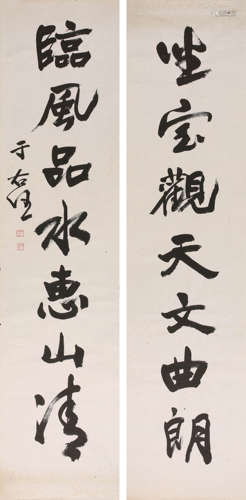 坐室觀天文曲朗
臨風品水惠山清
于右任